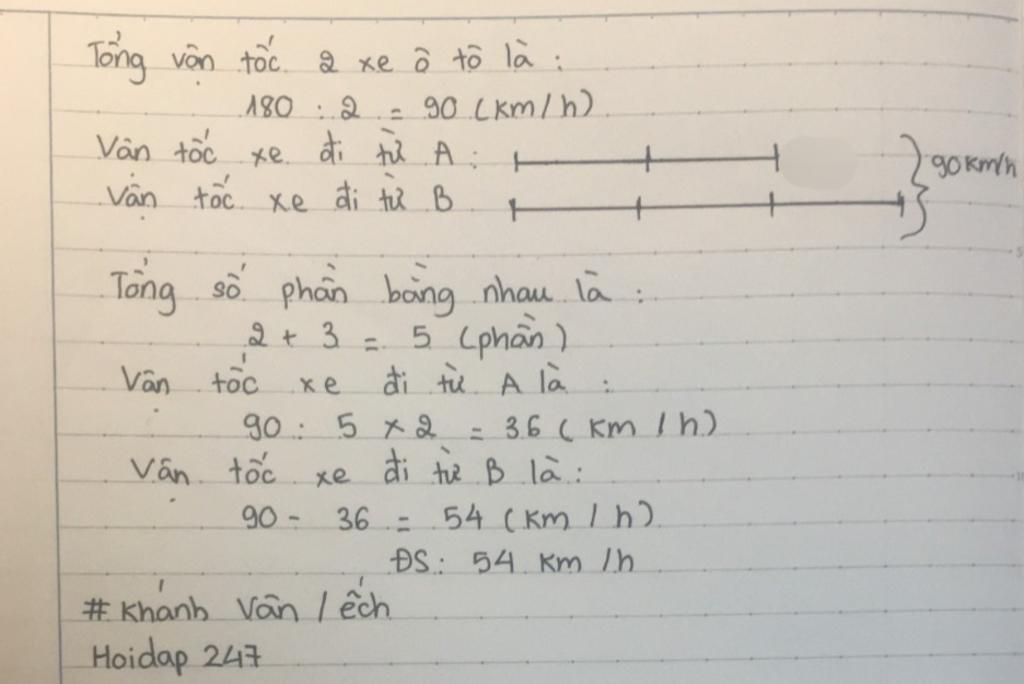 Tổng vận tốc 2 xe ô tô là :
180 : 2 = 90 (km/h)
Vận tốc xe đi từ A :
90 km/h
Vận tốc xe đi từ B
Tổng số phần bằng nhau là :
2 + 3 = 5 (phần)
Vận tốc xe đi từ A là :
90 : 5 × 2 = 36 ( km / h)
Vận tốc xe đi từ B là :
90 - 36 = 54 (km / h)
ĐS : 54 km /h
# Khánh Vân / ếch
Hoidap 247